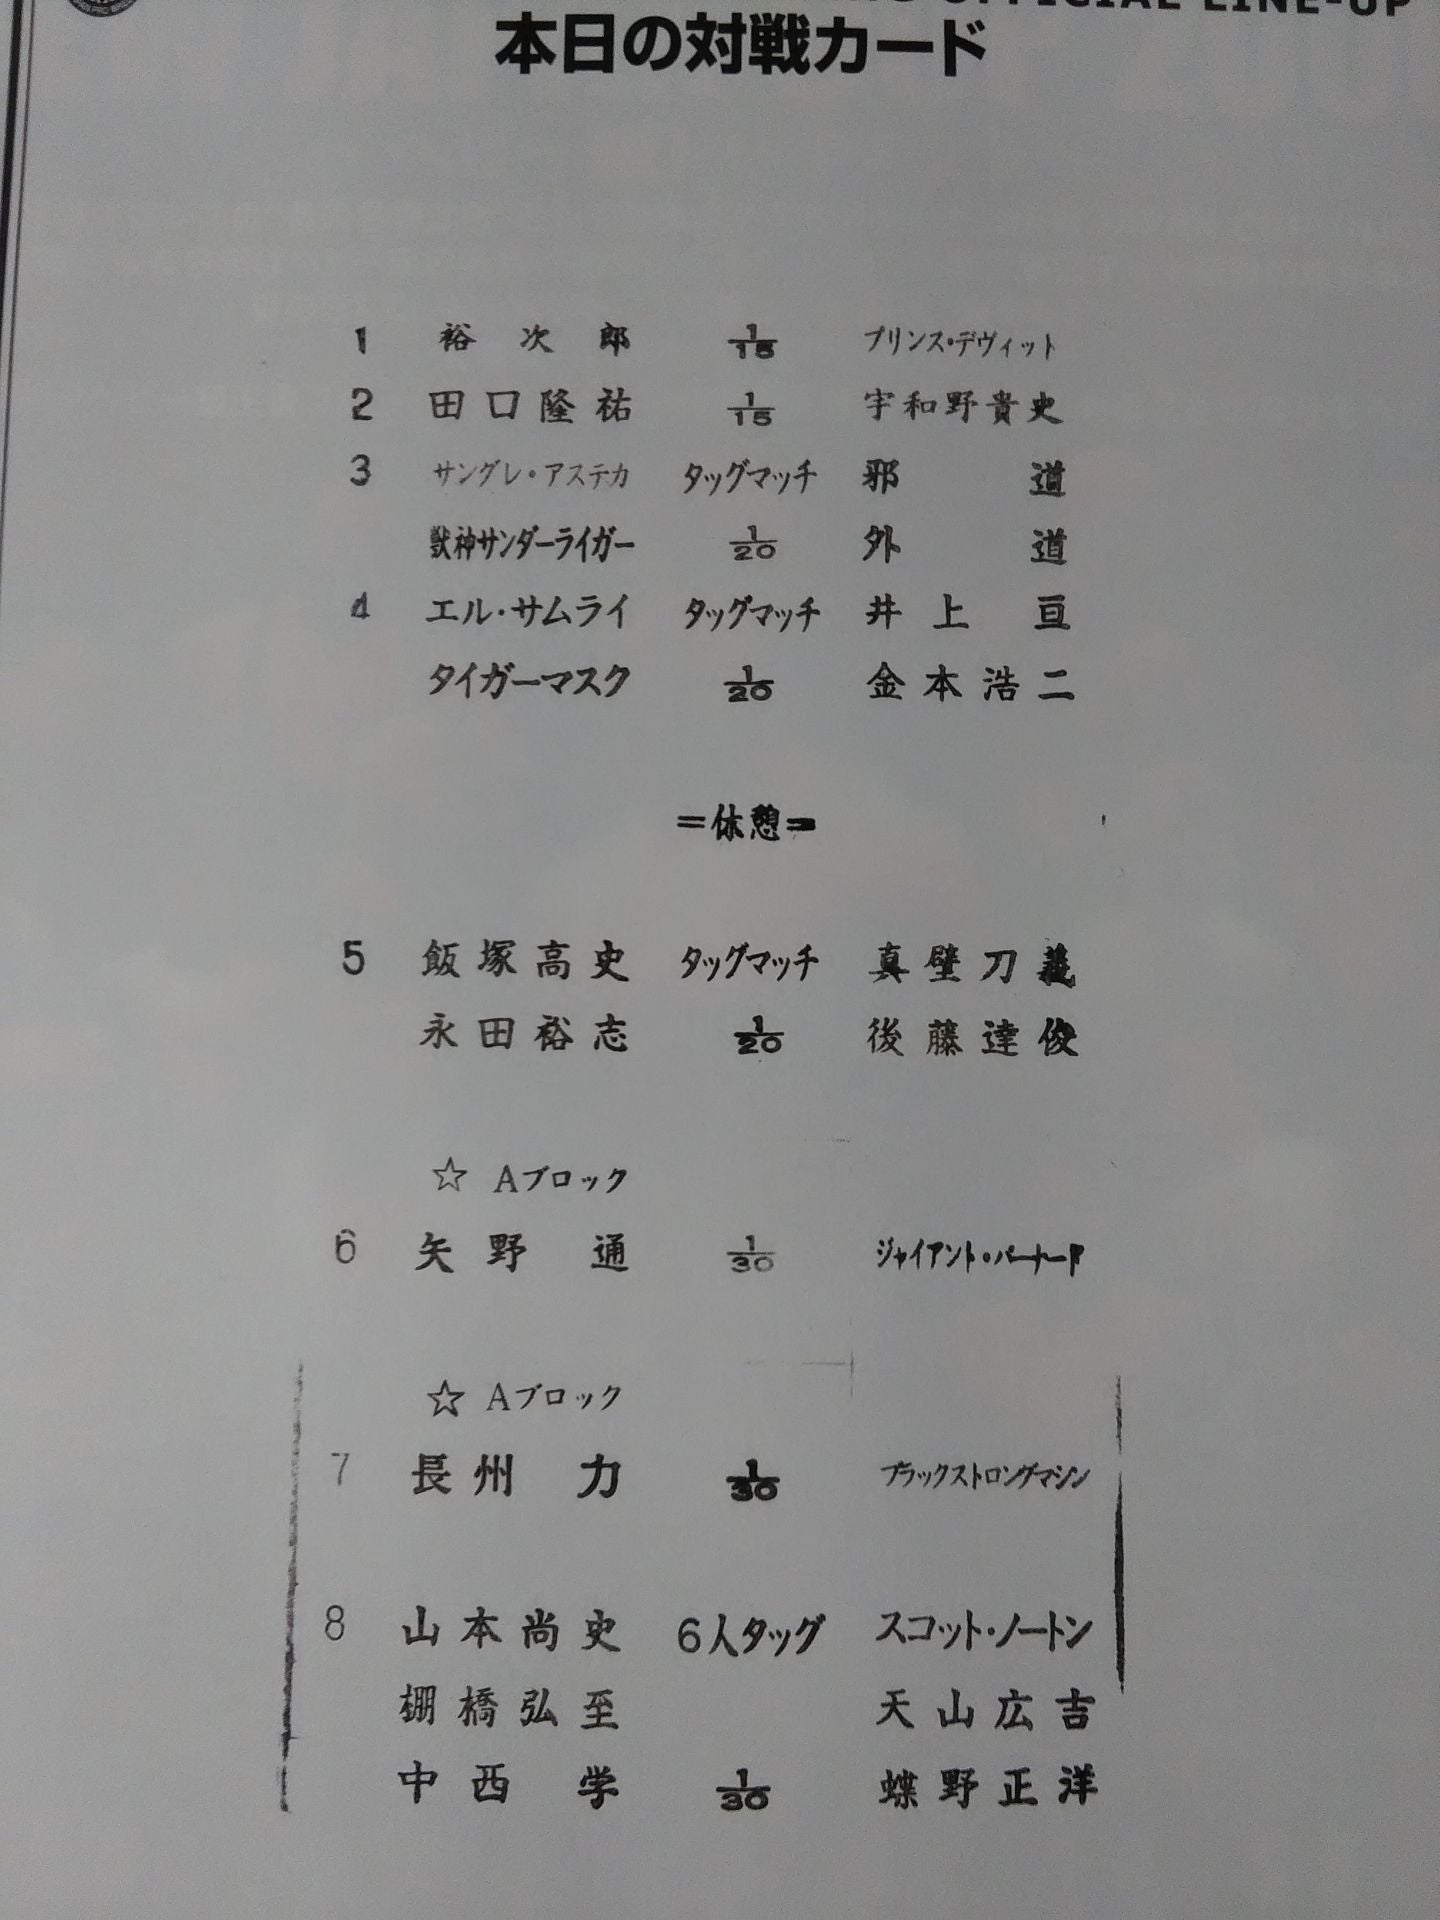 OFFICIAL LINE-UP
本日の対戦カード
1 裕次郎 1/15 プリンス・デヴィット
2 田口隆祐 1/15 宇和野貴史
3 サングレ・アステカ タッグマッチ 邪道
獣神サンダーライガー 1/20 外道
4 エル・サムライ タッグマッチ 井上亘
タイガーマスク 1/20 金本浩二
=休憩=
5 飯塚高史 タッグマッチ 真壁刀義
永田裕志 1/20 後藤達俊
☆ Aブロック
6 矢野通 1/30 ジャイアント・バーナード
☆ Aブロック
7 長州力 1/30 ブラックストロングマシン
8 山本尚史 6人タッグ スコット・ノートン
棚橋弘至 天山広吉
中西学 1/30 蝶野正洋